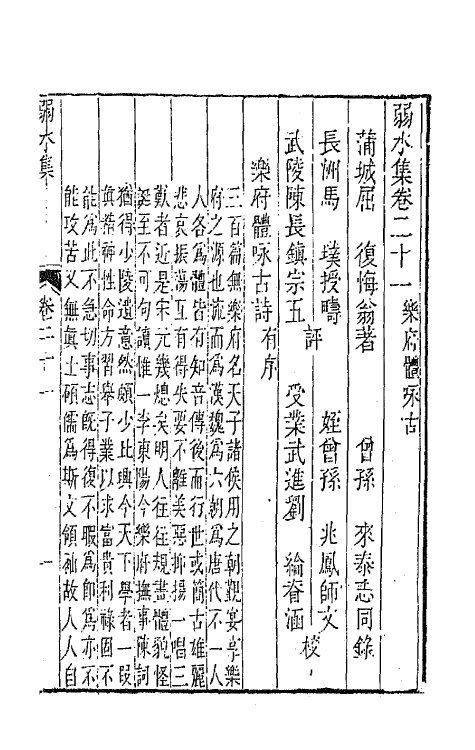 弱水集卷二十一 樂府體咏古
蒲城屈 復悔翁著 曾孫 來泰悉同錄
長洲馬 璞授疇 評 姪曾孫 兆鳳師文 校
武陵陳長鎮宗五 受業武進劉 綸眘涵
樂府體咏古詩 有序
三百篇無樂府名天子諸侯用之朝覲宴享樂
府之源也流而爲漢魏爲六朝爲唐代不一人
人各爲體皆有知音傳後而行世或簡古雄麗
悲哀振蕩互有得失要不離美惡抑揚一唱三
歎者近是宋元幾熄矣明人往往規畵體貌怪
誕至不可句讀惟一李東陽今樂府撫事陳詞
猶得少陵遺意然頗少比興今天下學者一段
眞精神性命方習舉子業以求富貴利祿固不
能爲此不急切事志旣得復不暇爲即爲亦不
能攻苦又無眞士碩儒爲斯文領袖故人人自
弱水集 卷二十一 一